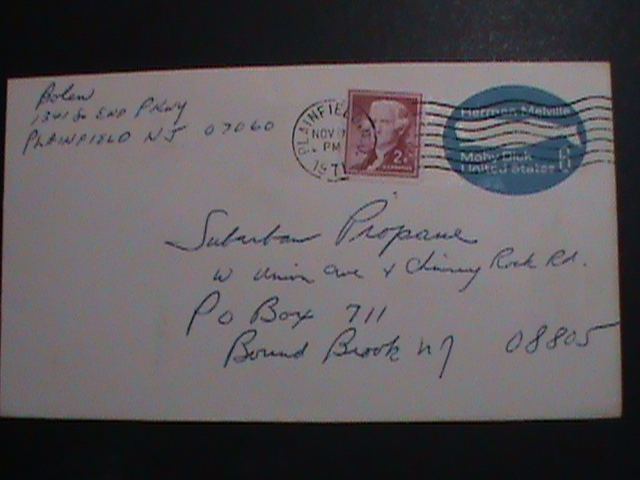 Bolen
PLAINFIELD NJ 07060
PLAINFIELD
NOV
PM
1971
2¢
Herman Melville
Moby Dick
United States 6
Suburban Propane
W Union Ave & Chimney Rock Rd.
PO Box 711
Bound Brook NJ 08805